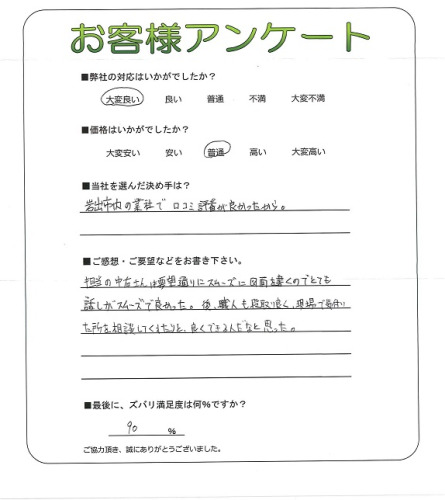 お客様アンケート
■弊社の対応はいかがでしたか？
大変良い 良い 普通 不満 大変不満
■価格はいかがでしたか？
大変安い 安い 普通 高い 大変高い
■当社を選んだ決め手は？
岩出市内の業社で 口コミ評書が良かったから。
■ご感想・ご要望などをお書き下さい。
担当の中古さんは要望通りにスムーズに図面を書くのでとても
話しがスムーズで良かった。後、職人も段取り良く、現場で気付い
た所を相談してくれたりと、良くできるんだなと思った。
■最後に、ズバリ満足度は何%ですか？
90 %
ご協力頂き、誠にありがとうございました。